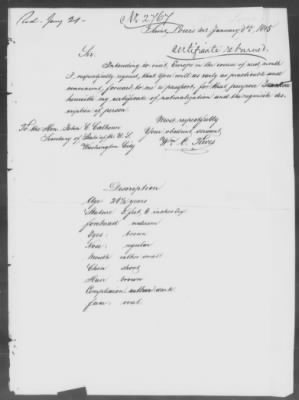 Recd. Jany 24 -
No. 2767
Saint Louis Mo January 3rd, 1845
certificate returned.
Sir.
Intending to visit Europe in the course of next month
I respectfully request, that You will as early as practicable and
convenient forward to me a passport, for that purpose.
herewith my certificate of naturalization and the requisite des-
cription of person
Most respectfully
To the Hon. John C. Calhoun
Your obedient servant,
Secretary of State of the U. S.
Wm. C.
Washington City
Description
Age 28 years
Stature 5 feet, 6 inches
forehead medium
Eyes brown
Nose regular
Mouth rather small
Chin short
Hair brown
Complexion rather dark
face oval